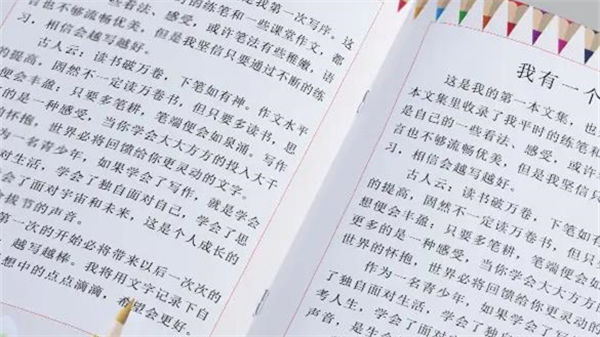 是我第一次写序。这
的练笔和一些课堂作文，都
些看法、感受，或许笔法有些稚嫩，语
言也不够流畅优美，但是我坚信只要通过不断的练
习，相信会越写越好。
古人云：读书破万卷，下笔如有神。作文水平
的提高，固然不一定读万卷书，但只要多读书，思
想便会丰盈：只要多笔耕，笔端便会如泉涌。写作
的是一种感受，当你学会大大方方的投入大千
的怀抱，世界必将回馈给你更灵动的文字。
为一名青少年，如果学会了写作，就是学会
对生活，学会了独自面对自己，学会了思
会了面对宇宙和未来，这是个人成长的
拔节的声音。
第一次的开始必将带来以后一次次的
越写越棒。我将用文字记录下自
想中的点点滴滴，希望会更好。
我有一个
这是我的第一本文集，也
本文集里收录了我平时的练笔和
是自己的一些看法、感受，或许
言也不够流畅优美，但是我坚信
习，相信会越写越好。
古人云：读书破万卷，下笔如
的提高，固然不一定读万卷书，但
想便会丰盈：只要多笔耕，笔端便会如
更多的是一种感受，当你学会大大方方
世界的怀抱，世界必将回馈给你更灵动
作为一名青少年，如果学会了写
了独自面对生活，学会了独自
考人生，学会了面对
声音，是生